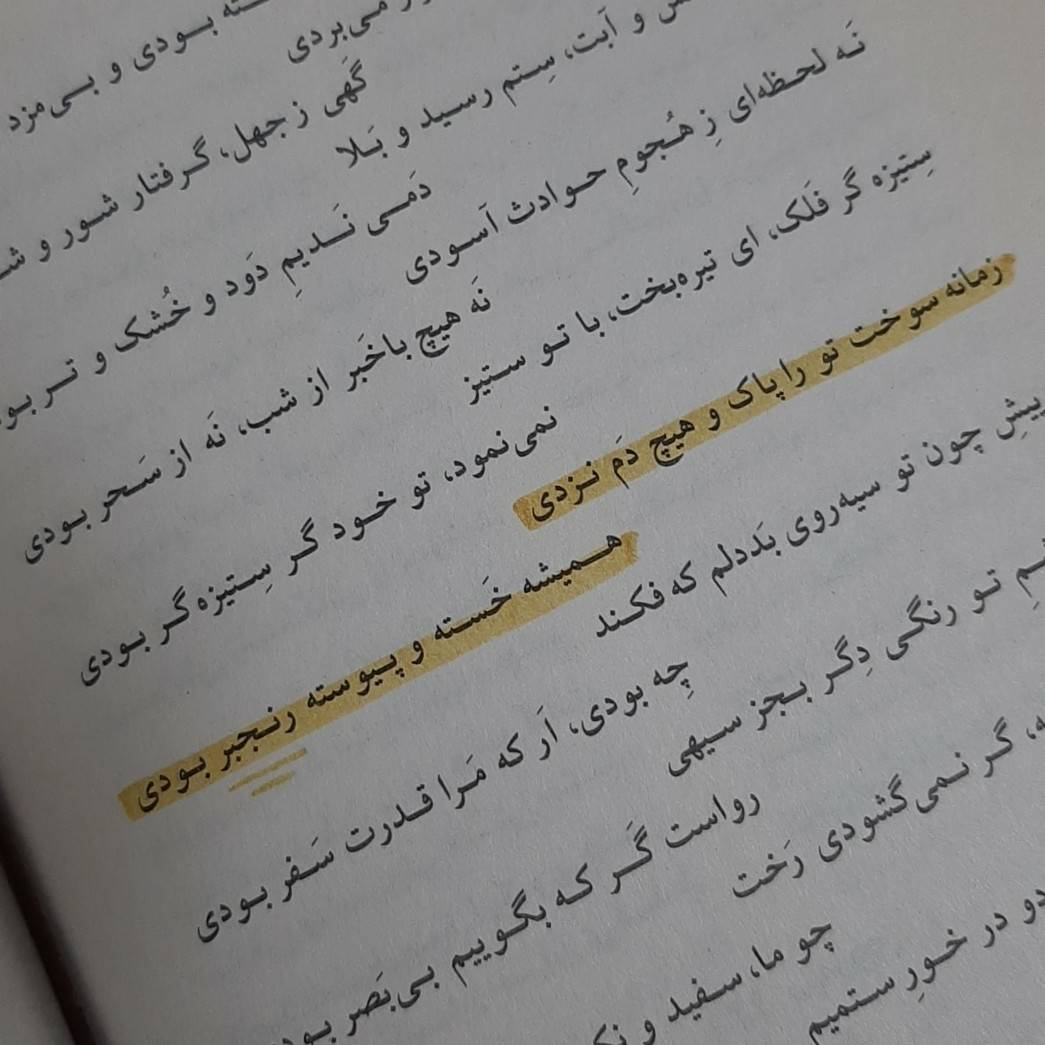 بودی و بی‌مزد
می‌بردی
گهی ز جهل، گرفتار شور و
و آبت، سِتم رسید و بَلا
دَمی نَدیمِ دَود و خُشک و تر
نَه لحظه‌ای زِ هُجومِ حوادث آسودی
نَه هیچ باخَبر از شب، نَه از سَحر بودی
سِتیزه گر فَلَک، ای تیره‌بخت، با تو ستیز
نمی‌نمود، تو خود گر سِتیزه‌گر بودی
زمانه سوخت تو را پاک و هیچ دَم نزدی
همیشه خَسته و پیوسته رنجبر بودی
چون تو سیه‌روی بَددلم که فکند
چِه بودی، اَر که مَرا قدرت سَفر بودی
تو رنگی دِگر بجز سیهی
رواست گَر که بگوییم بی‌بَصر
گر نمی‌گشودی رَخت
چو ما، سفید و
دو در خورِ ستمیم